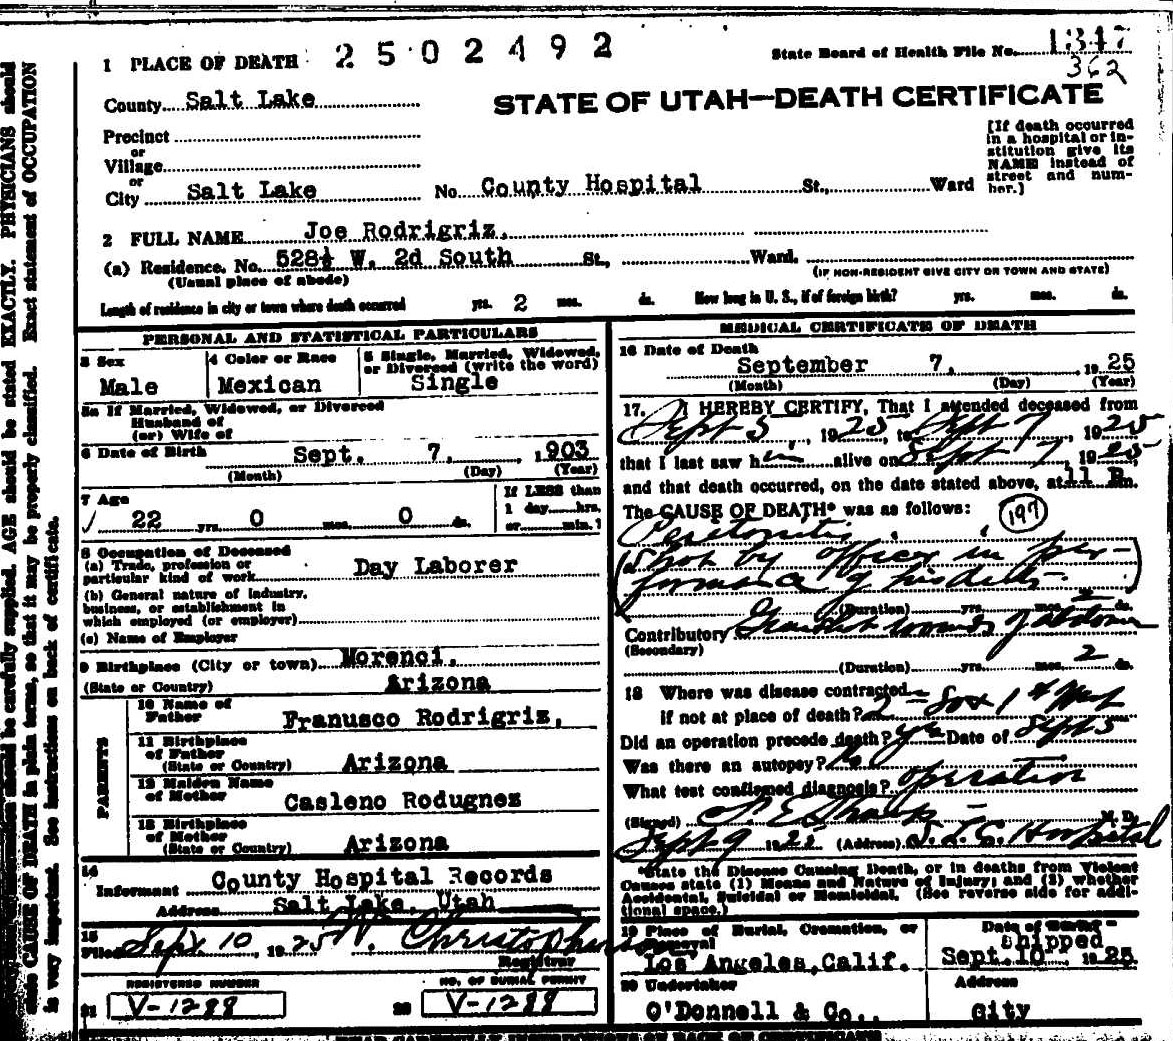 1 PLACE OF DEATH 2502492
State Board of Health File No. 1347
362
County Salt Lake
STATE OF UTAH—DEATH CERTIFICATE
Precinct
or
Village
or
City Salt Lake No. County Hospital St., Ward
[If death occurred
in a hospital or in-
stitution give its
NAME instead of
street and num-
ber.]
2 FULL NAME Joe Rodrigriz.
(a) Residence. No. 528½ W. 2d South St., Ward.
(Usual place of abode) (IF NON-RESIDENT GIVE CITY OR TOWN AND STATE)
Length of residence in city or town where death occurred yrs. 2 mos. ds. How long in U. S., if of foreign birth? yrs. mos. ds.
PERSONAL AND STATISTICAL PARTICULARS
3 Sex
Male
4 Color or Race
Mexican
5 Single, Married, Widowed,
or Divorced (write the word)
Single
5a If Married, Widowed, or Divorced
Husband of
(or) Wife of
6 Date of Birth Sept. 7. 1903
(Month) (Day) (Year)
7 Age
22 yrs. 0 mos. 0 ds.
If LESS than
1 day hrs.
or min.?
8 Occupation of Deceased
(a) Trade, profession or
particular kind of work Day Laborer
(b) General nature of industry,
business, or establishment in
which employed (or employer)
(c) Name of Employer
9 Birthplace (City or town) Morenci.
(State or Country) Arizona
PARENTS
10 Name of
Father Franusco Rodrigriz,
11 Birthplace
of Father
(State or Country) Arizona
12 Maiden Name
of Mother Casleno Rodugnez
13 Birthplace
of Mother
(State or Country) Arizona
14
Informant County Hospital Records
Address Salt Lake, Utah
15
Filed Sept. 10, 1925 W. Christopherson
Registrar
REGISTERED NUMBER
21 V-1288
NO. OF BURIAL PERMIT
22 V-1288
MEDICAL CERTIFICATE OF DEATH
16 Date of Death
September 7. 1925
(Month) (Day) (Year)
17. I HEREBY CERTIFY, That I attended deceased from
Sept 5, 1925, to Sept 7, 1925
that I last saw him alive on Sept 7, 1925,
and that death occurred, on the date stated above, at 11 P.m.
The CAUSE OF DEATH* was as follows: 197
Peritonitis
(Shot by officer in per-
formance of his duty.)
(Duration) yrs. mos. 2 ds.
Contributory Gunshot wounds of abdomen
(Secondary)
(Duration) yrs. mos. 2 ds.
18 Where was disease contracted
if not at place of death? 2nd So & 1st West
Did an operation precede death? yes Date of Sept 5
Was there an autopsy? No
What test confirmed diagnosis? operation
(Signed) M. D.
Sept 9 1925 (Address) S. L. C. Hospital
*State the Disease Causing Death, or in deaths from Violent
Causes state (1) Means and Nature of Injury; and (2) whether
Accidental, Suicidal or Homicidal. (See reverse side for addi-
tional space.)
19 Place of Burial, Cremation, or
Removal
Los Angeles, Calif.
Date of
Shipped
Sept. 10, 1925
20 Undertaker
O'Donnell & Co..
Address
City
READ CAREFULLY INSTRUCTIONS ON BACK OF CERTIFICATE
should be carefully supplied. AGE should be stated EXACTLY. PHYSICIANS should
state CAUSE OF DEATH in plain terms, so that it may be properly classified. Exact statement of OCCUPATION
is very important. See instructions on back of certificate.